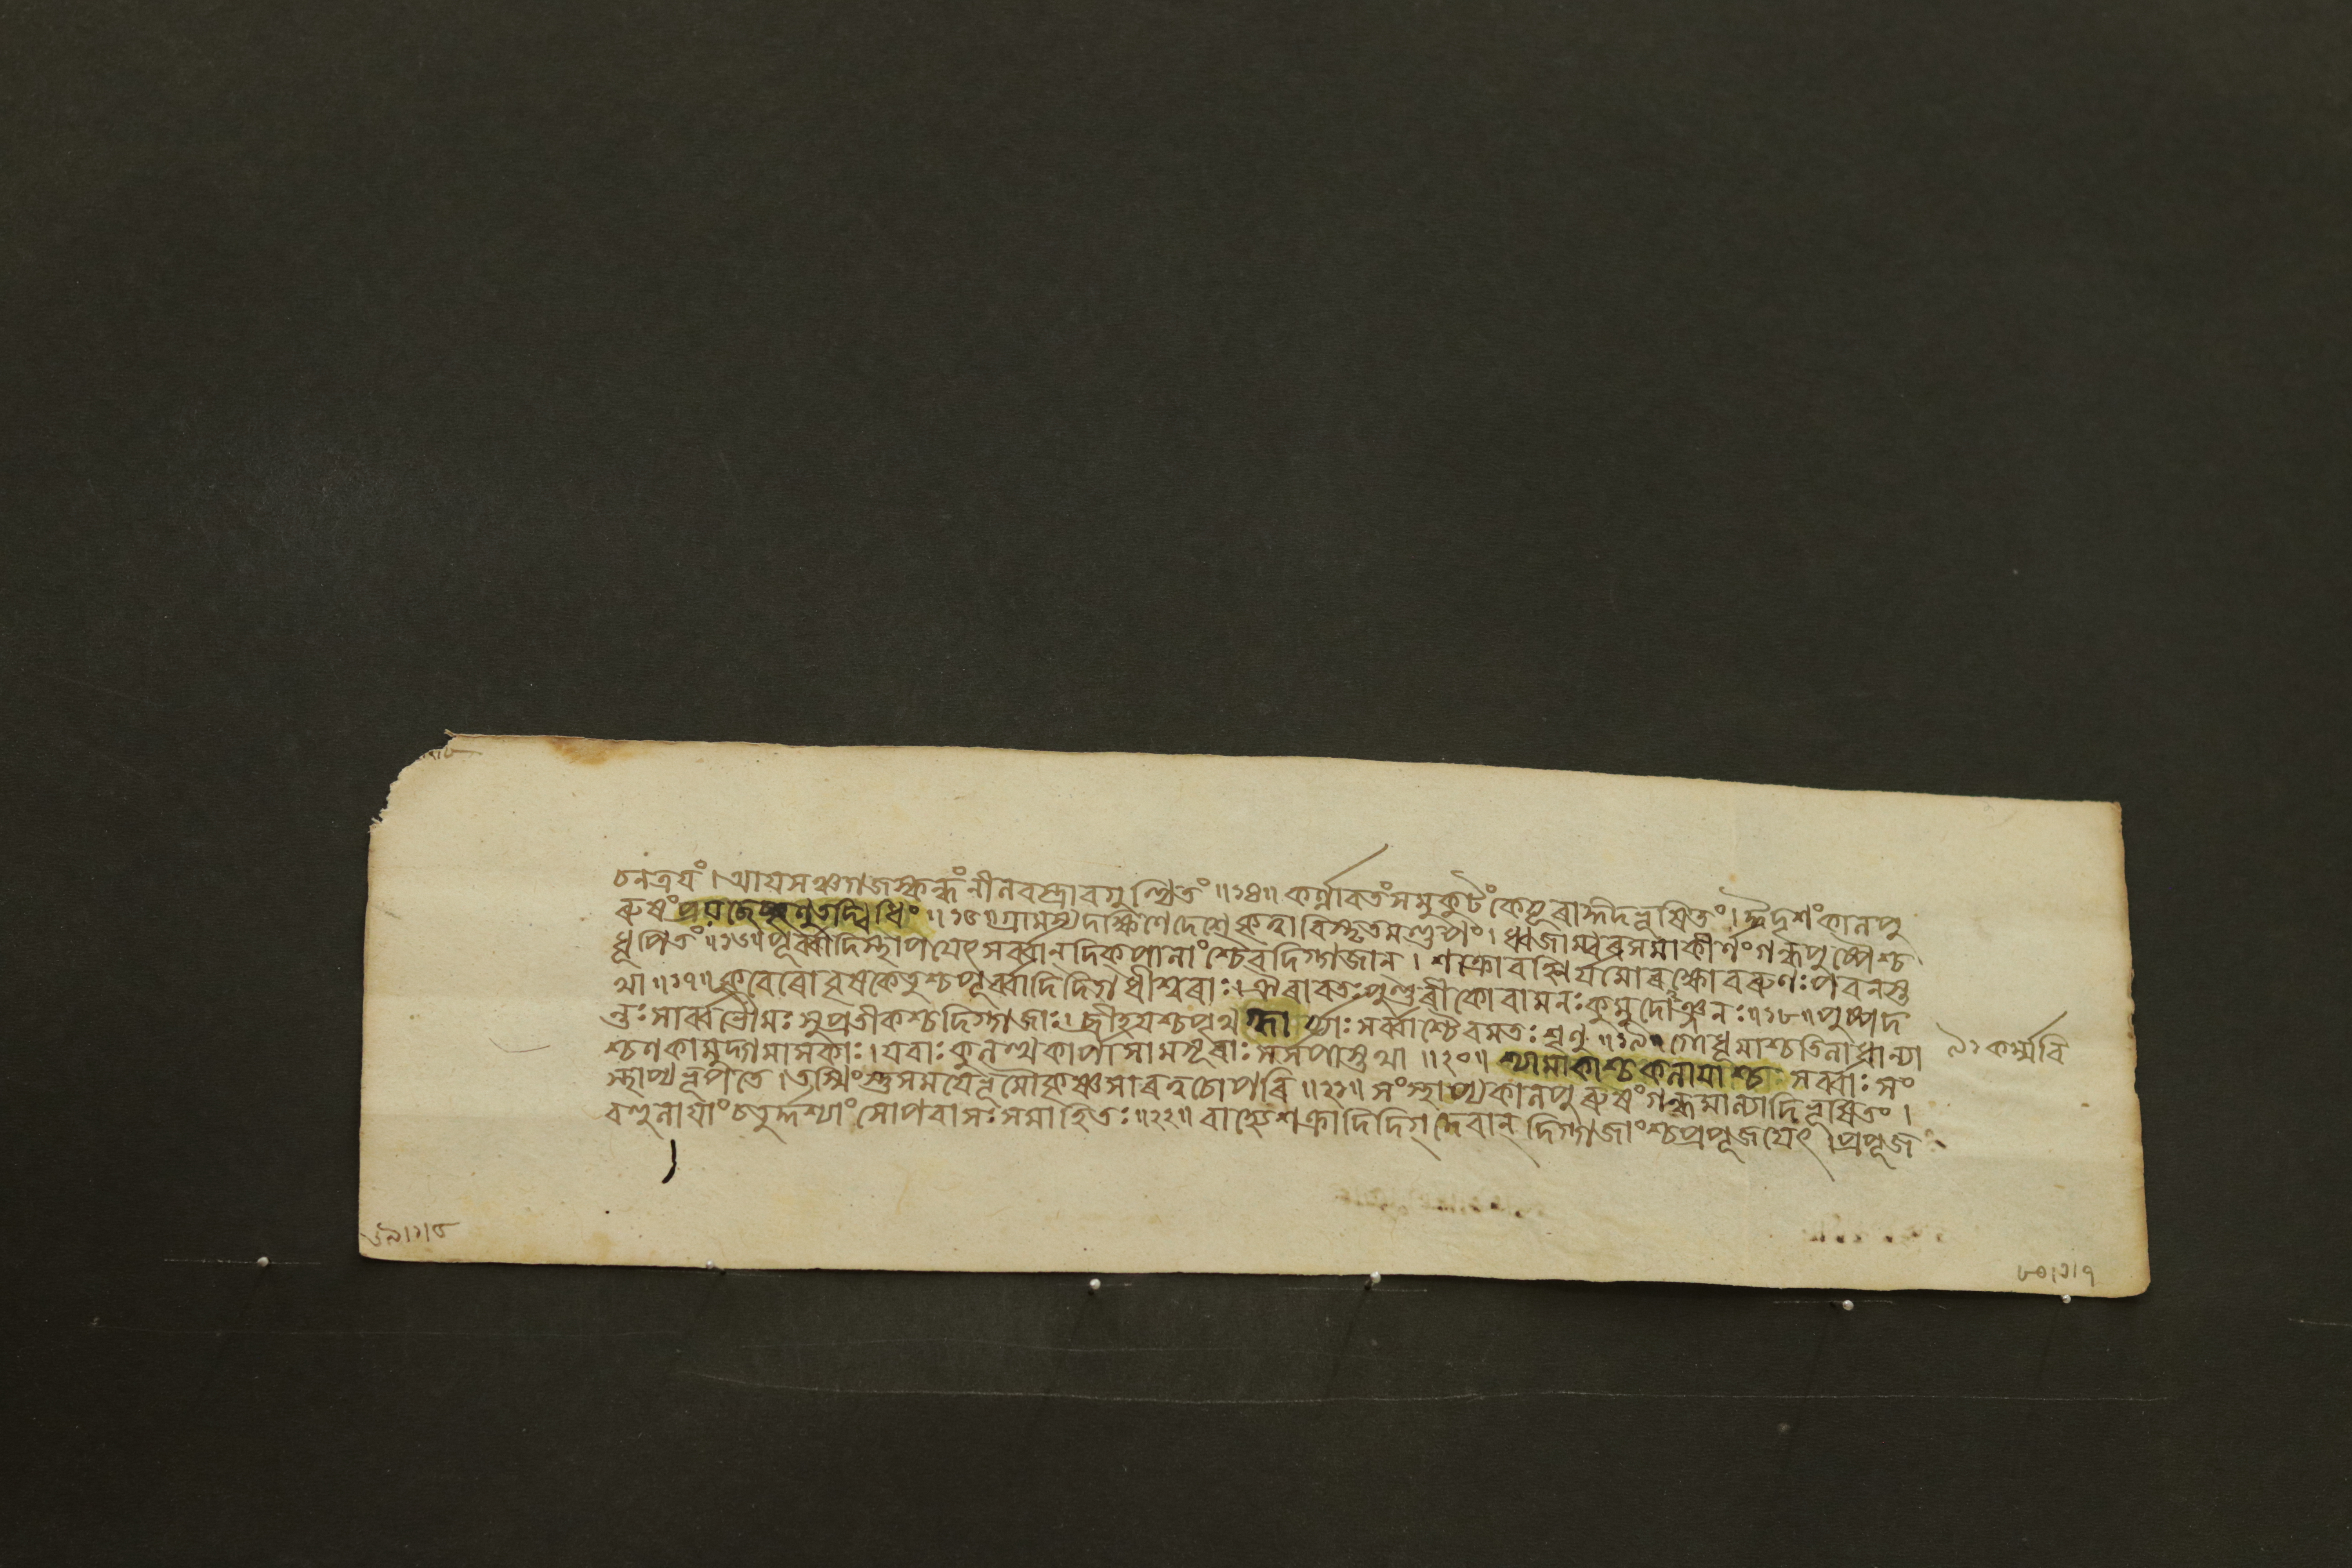 চনত্রয়ং। আয়সঞ্চগজস্কন্ধং নীলবস্ত্রাবগুণ্ঠিতং ॥১৫॥ কর্ণ্ণাবতংসমুকুটং কেয়ূৰাঙ্গদভূষিতং। ঈদৃশং কালপু
ৰুষং শৃণু তদ্বিধিং ॥১৬॥ গ্রামস্য দক্ষিণে দেশে কৃত্বা বিস্তৃতমণ্ডপং। ধ্বজাম্বৰসমাকীর্ণং গন্ধপুষ্পৈশ্চ
ধূপিতং ॥১৬॥ পূর্ব্বাদি স্থাপয়েৎ সর্ব্বান্ দিক্পালাংশ্চৈব দিগ্গজান্। শক্রো বহ্নির্যমো ৰক্ষো বৰুণঃ পবনস্ত
থা ॥১৭॥ কুবেৰো বৃষকেতুশ্চ পূর্ব্বাদিদিগধীশ্বৰাঃ। ঐৰাবতঃ পুণ্ডৰীকো বামনঃ কুমুদোঞ্জনঃ ॥১৮॥ পুষ্পদ
ন্তঃ সার্ব্বভৌমঃ সুপ্রতীকশ্চ দিগ্গজাঃ। ব্রীহয়শ্চ পৃথ সর্ব্বাশ্চৈবমতঃ শৃণু ॥১৯॥ গোধূমাশ্চ তিলা ধান্যা
শ্চণকা মুদ্গমাসকাঃ। যবাঃ কুলত্থকার্পাসা মসূৰাঃ সর্সপাস্তথা ॥২০॥ শ্যামাকাশ্চ কলায়াশ্চ সর্ব্বাঃ সং
স্থাপ্য ভূপতে। তস্মিংস্তু সময়ে ভূমৌ কৃষ্ণসাৰত্বচোপৰি ॥২১॥ সংস্থাপ্য কালপুৰুষং গন্ধমাল্যাদিভূষিতং।
বহুলায়াং চতুর্দ্দশ্যাং সোপবাসঃ সমাহিতঃ ॥২২॥ বাহ্যে শক্রাদিদিগ্দেবান্ দিগ্গজাংশ্চ প্রপূজয়েৎ। প্রপূজ
৯১ কর্ম্মবি
৬৯।১।৮
৮০।১।৭